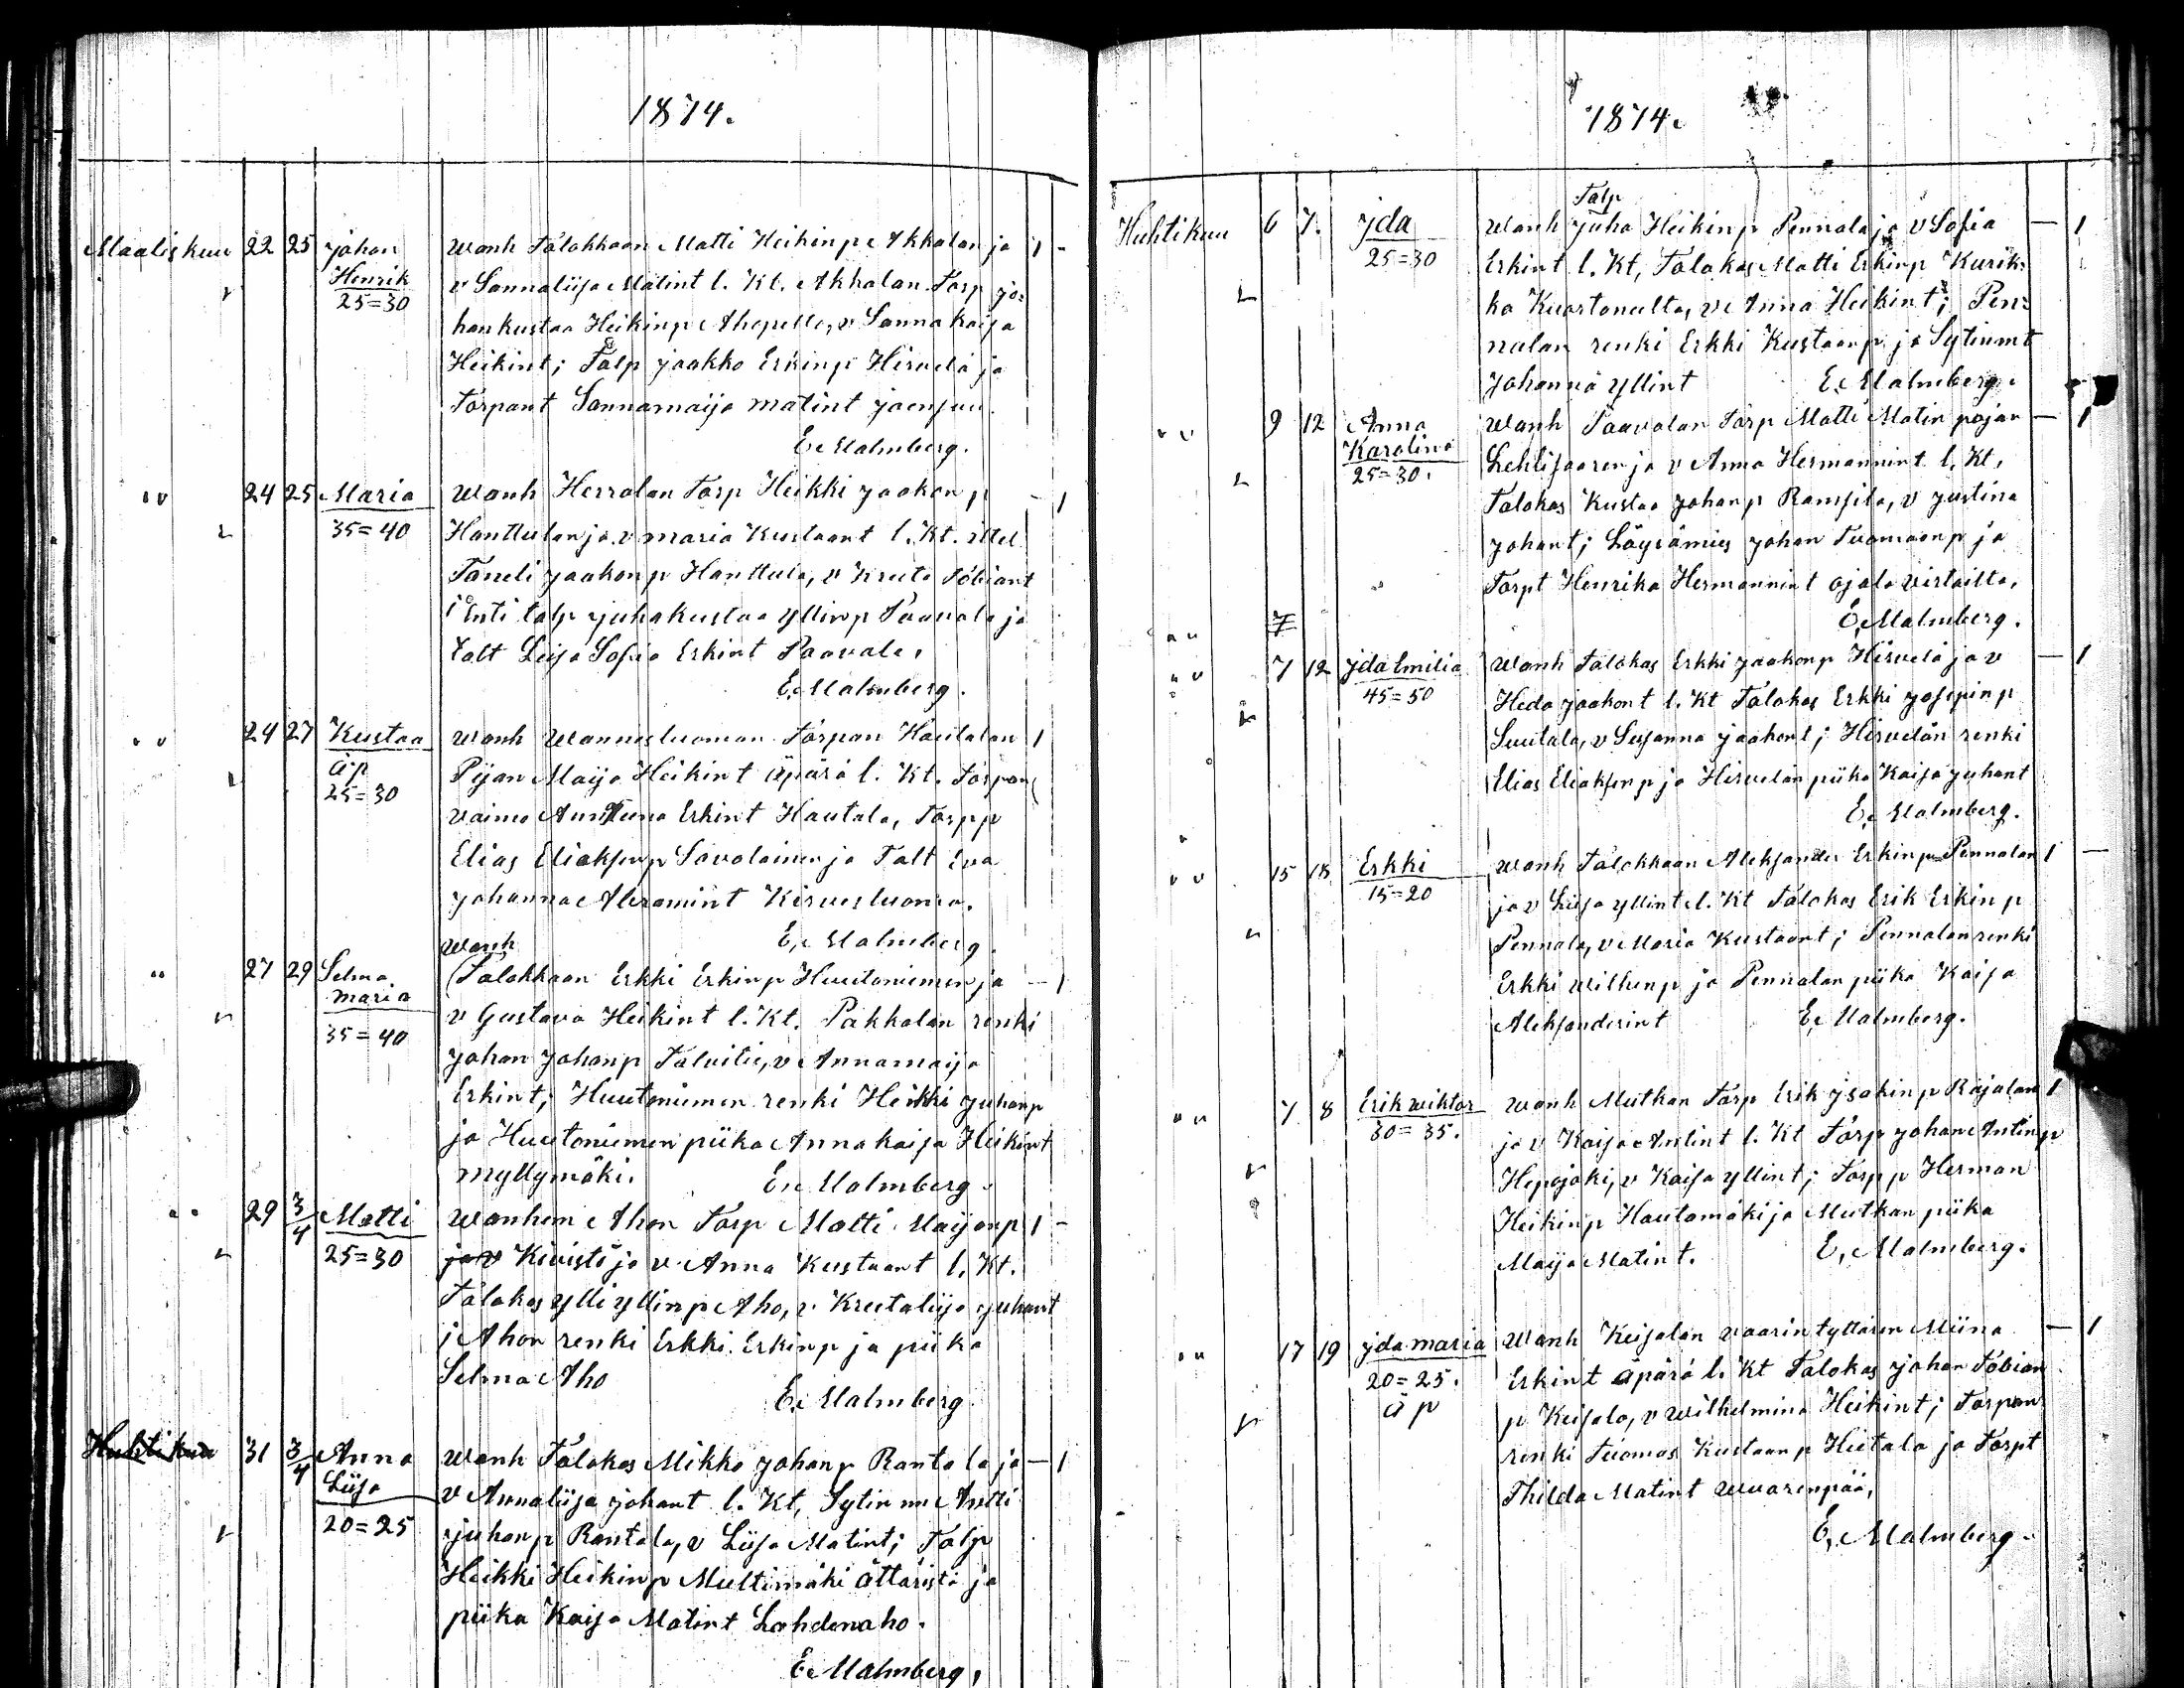 1874.
Maaliskuu 22 25 Johan Wanh Talokkaan Matti Heikinp Akkalan ja 1 -
Henrik v Sannaliisa Matint l. Kt. Akkalan Torp jo=
25=30
hankustaa Heikinp Ahopelto, v Sanna kaisa
Heikint; Talp Jaakko Erkinp Hirvelä ja
Torpant Sannamaija matint Joensuu.
E. Malmberg.
" 24 25 Maria Wanh Herralan Torp Heikki Jaakonp - 1
35=40 Hanttulan ja v maria Kustaant l. Kt. ittel
Taneli Jaakonp Hanttula, v Kreeta Tobiant
Enti talp Juhakustaa Yllinp Paavola ja
Talt Leisa Sofia Erkint Paavola,
E. Malmberg.
" 24 27 Kustaa Wanh Wannisluoman Torpan Hautalan 1
äp Pijan Maija Heikint äpärä l. Kt. Torpan
25=30 vaimo Erkint Hautala, Torpp
Elias Eliaksenp Savolainen ja Talt Eva
Johanna Abramint Kirvesluoma.
E. Malmberg.
Wanh
" 27 29 Selma Talokkaan Erkki Erkinp Huutoniemen ja - 1
maria v Gustava Heikint l. Kt. Pakkalan renki
35=40 Johan Johanp Talvitie, v Annamaija
Erkint; Huutoniemen renki Heikki Juhanp
ja Huutoniemen piika Annakaisa Heikint
myllymäki. E. Malmberg.
" 29 3/4 Matti Wanhem Ahon Torp Matti Maijanp 1 -
25=30 ja v Kivistö ja v Anna Kustaant l. Kt.
Talokas Ylli Yllinp Aho, v Kreetaliisa Juhant
j Ahon renki Erkki Erkinp ja piika
Selma Aho
E. Malmberg
Huhtikuu 31 3/4 Anna Wanh Talokas Mikko Johanp Rantala ja - 1
Liisa v Annaliisa Johant l. Kt, Sytin m Antti
20=25 Juhanp Rantala, v Liisa Matint; Talp
Heikki Heikinp Multimäki Ättäristä ja
piika Kaisa Matint Lahdenaho.
E. Malmberg,
1874.
Talp
Huhtikuu 6 7. Jda Wanh Juha Heikinp Pennala ja v Sofia - 1
25=30 Erkint l. Kt, Talokas Matti Erkinp Kurik=
ka Kuortaneelta, v Anna Heikint; Pen=
nalan renki Erkki Kustaanp ja Sytinmt
Johanna Yllint E. Malmberg.
" 9 12 Anna Wanh Paavolan Torp Matti Matin pojan - 1
Karolina Lehtisaaren ja v Anna Hermannint l. Kt,
25=30. Talokas Kustaa Johanp Ransila, v Justina
Johant; Löysämies Johan Tuomaanp ja
Torpt Henrika Hermannint Ojala Virtailta,
7 E. Malmberg.
" 7 12 Jda Emilia Wanh Talokas Erkki Jaakonp Hirvelä ja v - 1
45=50 Heda Jaakont l. Kt Talokas Erkki Josepinp
Suutala, v Susanna Jaakont; Hirvelän renki
Elias Eliaksenp ja Hirvelän piika Kaisa Juhant
E. Malmberg.
" 15 18 Erkki Wanh Talokkaan Aleksander Erkinp Pennalan 1 -
15=20 ja v Liisa Yllint l. Kt Talokas Erik Erkinp
Pennala, v Maria Kustaant; Pennalan renki
Erkki Willenp ja Pennalan piika Kaisa
Aleksanderint E. Malmberg.
" 7 8 Erik wiktor Wanh Mutkan Torp Erik Jsakinp Rajalan 1
30=35. ja v Kaisa Antint l. Kt Torp Johan Antinp
Hepojoki, v Kaisa Yllint; Torpp Herman
Heikinp Hautamäki ja Mutkan piika
Maija Matint. E. Malmberg.
" 17 19 Jda maria Wanh Keisalan vaarin tyttären Miina - 1
20=25. Erkint äpärä l. Kt Talokas Johan Tobian
äp p Keisala, v Wilhelmina Heikint; Torpan
renki Tuomas Kustaanp Hietala ja Torpt
Thilda Matint Wuorenpää,
E. Malmberg.